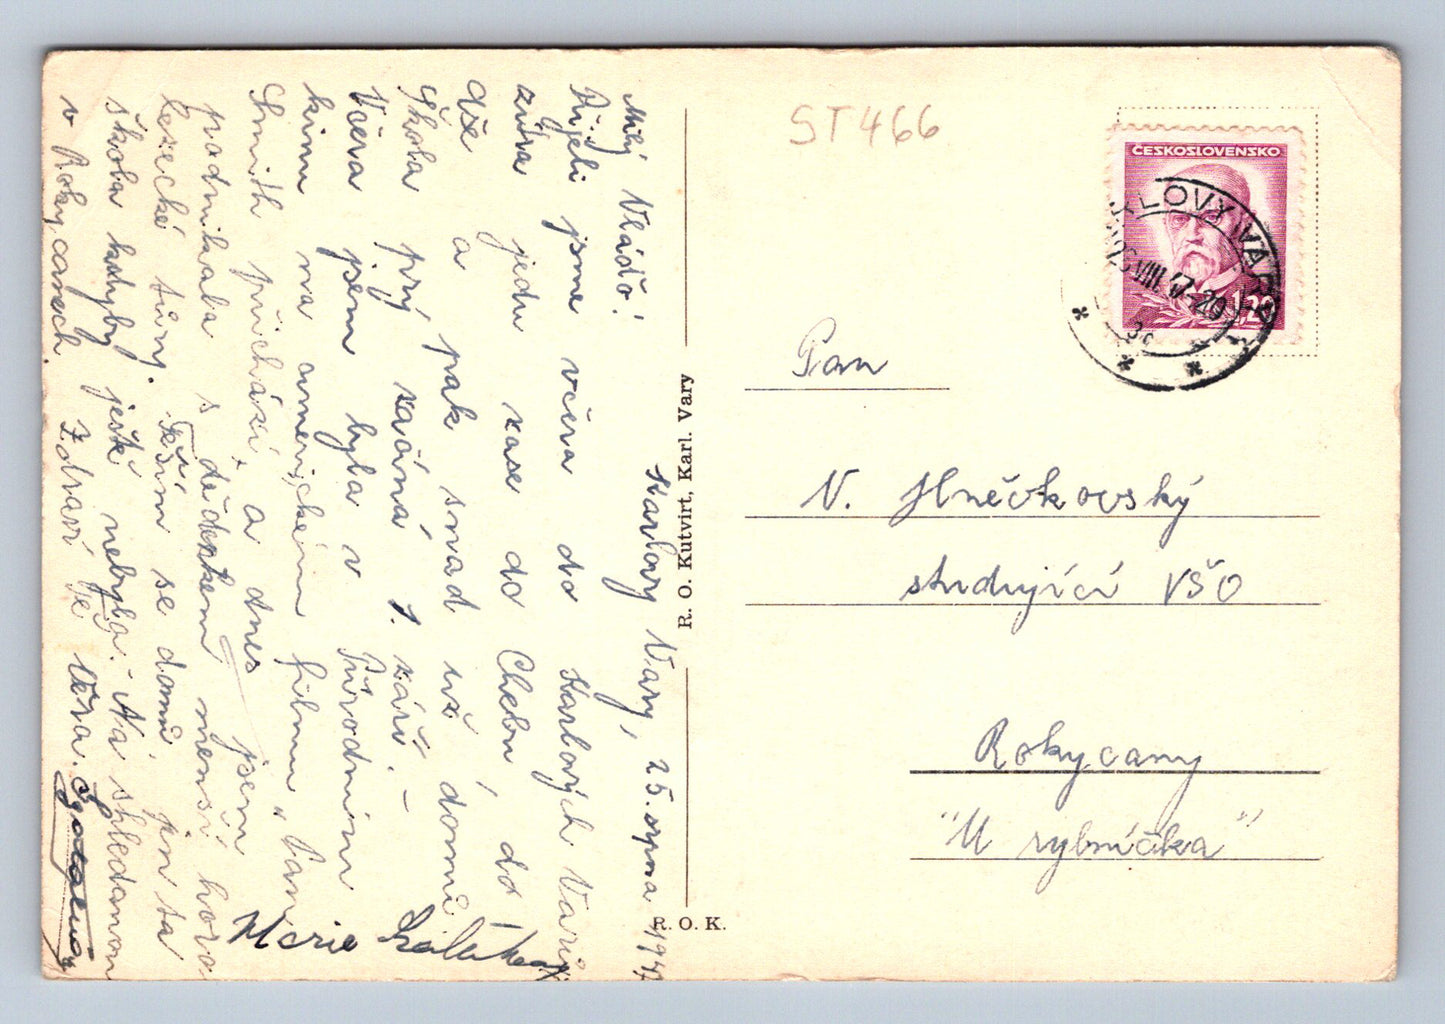 Karlovy Vary, 25. srpna 1947
Milý Vláďo!
Přijeli jsme včera do Karlových Varů
zítra jedu zase do Chebu, do
dže a pak snad už domů
Škola prý začíná 1. září. -
Včera jsem byla v Přírodním
kinu na americkém filmu „Pan
Smith přichází" a dnes jsem
podnikala s dědečkem menší horo
lezecké túry. Těším se domů, jen ta
škola kdyby ještě nebyla. - Na shledanou
v Rokycanech. Zdraví Tě Věra.
Marie
R. O. Kutvirt, Karl. Vary
R. O. K.
ST466
ČESKOSLOVENSKO
1,20
KARLOVY VARY
VIII. 47-20
Pan
V. Hněvkovský
studující VŠO
Rokycany
"U rybníčka"